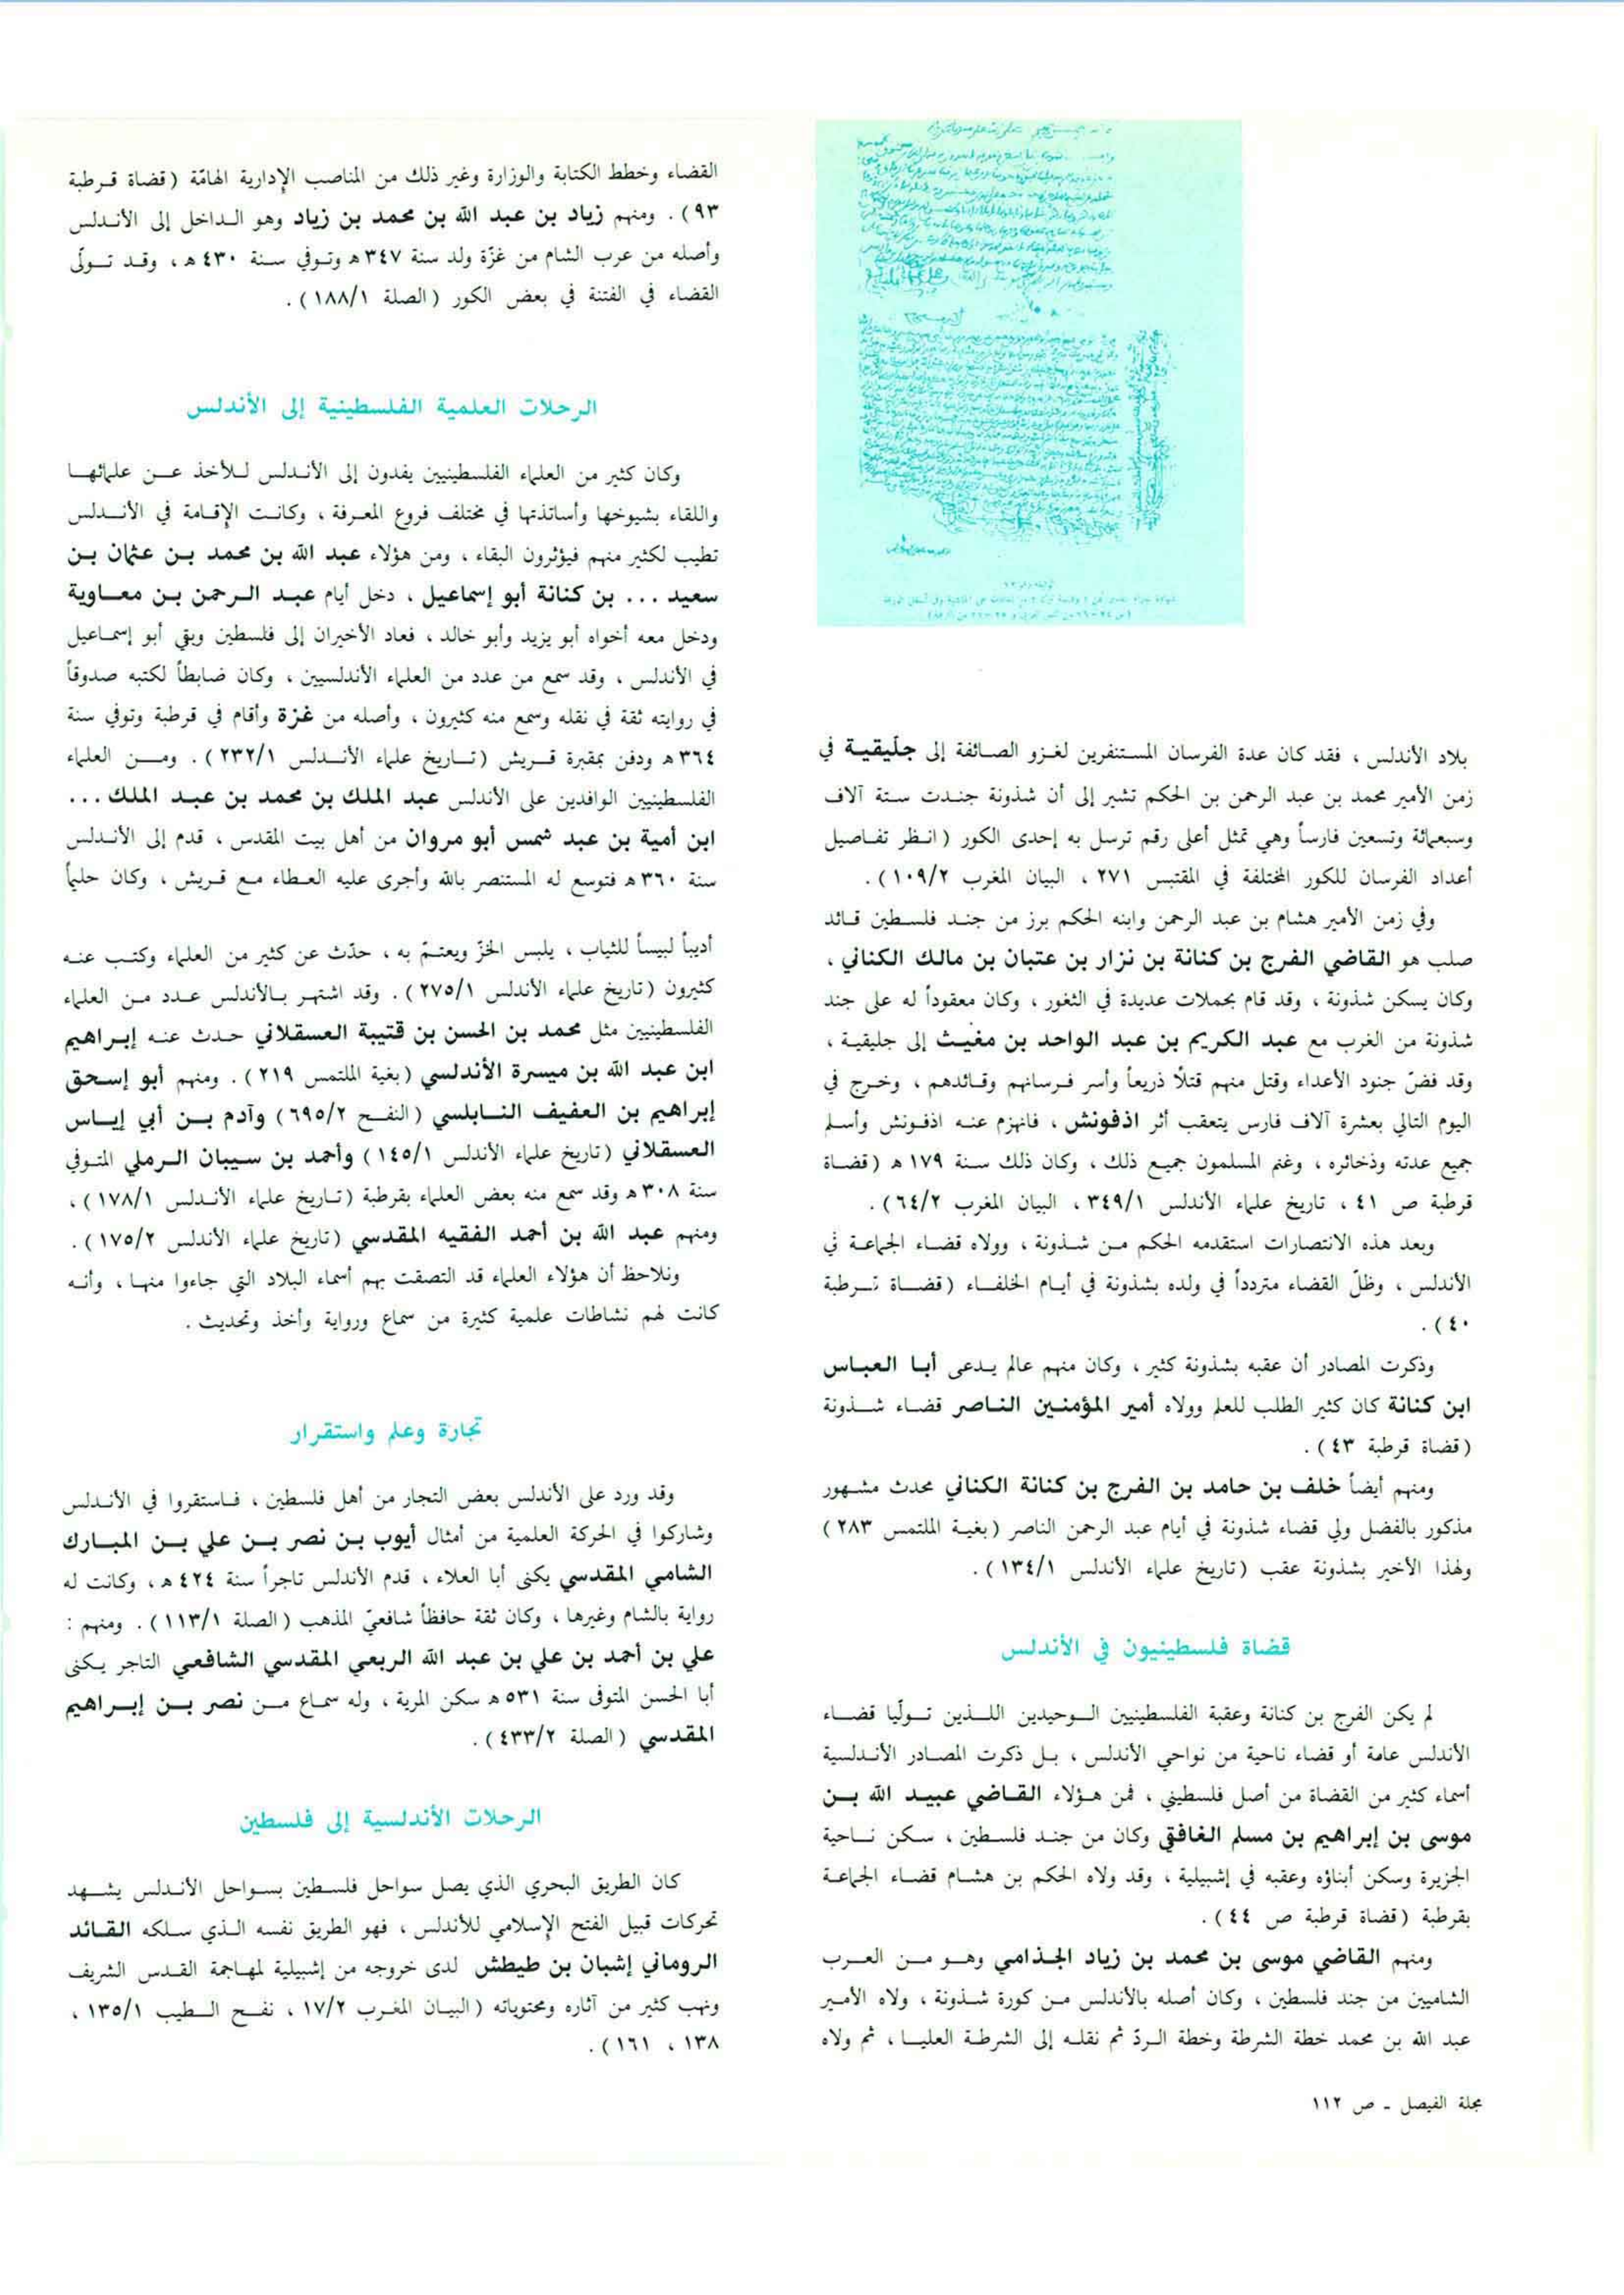 بلاد الأندلس ، فقد كان عدة الفرسان المستنفرين لغزو الصائفة إلى جلّيقية في
زمن الأمير محمد بن عبد الرحمن بن الحكم تشير إلى أن شذونة جندت ستة آلاف
وسبعمائة وتسعين فارساً وهي تمثل أعلى رقم ترسل به إحدى الكور ( انظر تفاصيل
أعداد الفرسان للكور المختلفة في المقتبس ٢٧١ ، البيان المغرب ١٠٩/٢ ) .
وفي زمن الأمير هشام بن عبد الرحمن وابنه الحكم برز من جند فلسطين قائد
صلب هو القاضي الفرج بن كنانة بن نزار بن عتبان بن مالك الكناني ،
وكان يسكن شذونة ، وقد قام بحملات عديدة في الثغور ، وكان معقوداً له على جند
شذونة من الغرب مع عبد الكريم بن عبد الواحد بن مغيث إلى جليقية ،
وقد فضّ جنود الأعداء وقتل منهم قتلاً ذريعاً وأسر فرسانهم وقائدهم ، وخرج في
اليوم التالي بعشرة آلاف فارس يتعقب أثر اذفونش ، فانهزم عنه اذفونش وأسلم
جميع عدته وذخائره ، وغنم المسلمون جميع ذلك ، وكان ذلك سنة ١٧٩ هـ ( قضاة
قرطبة ص ٤١ ، تاريخ علماء الأندلس ٣٤٩/١ ، البيان المغرب ٦٤/٢ ) .
وبعد هذه الانتصارات استقدمه الحكم من شذونة ، وولاه قضاء الجماعة في
الأندلس ، وظلّ القضاء متردداً في ولده بشذونة في أيام الخلفاء ( قضاة قرطبة
٤٠ ) .
وذكرت المصادر أن عقبه بشذونة كثير ، وكان منهم عالم يدعى أبا العباس
ابن كنانة كان كثير الطلب للعلم وولاه أمير المؤمنين الناصر قضاء شذونة
( قضاة قرطبة ٤٣ ) .
ومنهم أيضاً خلف بن حامد بن الفرج بن كنانة الكناني محدث مشهور
مذكور بالفضل ولي قضاء شذونة في أيام عبد الرحمن الناصر ( بغية الملتمس ٢٨٣ )
ولهذا الأخير بشذونة عقب ( تاريخ علماء الأندلس ١٣٤/١ ) .
قضاة فلسطينيون في الأندلس
لم يكن الفرج بن كنانة وعقبة الفلسطينيين الوحيدين اللذين تولّيا قضاء
الأندلس عامة أو قضاء ناحية من نواحي الأندلس ، بل ذكرت المصادر الأندلسية
أسماء كثير من القضاة من أصل فلسطيني ، فمن هؤلاء القاضي عبيد الله بن
موسى بن إبراهيم بن مسلم الغافقي وكان من جند فلسطين ، سكن ناحية
الجزيرة وسكن أبناؤه وعقبه في إشبيلية ، وقد ولاه الحكم بن هشام قضاء الجماعة
بقرطبة ( قضاة قرطبة ص ٤٤ ) .
ومنهم القاضي موسى بن محمد بن زياد الجذامي وهو من العرب
الشاميين من جند فلسطين ، وكان أصله بالأندلس من كورة شذونة ، ولاه الأمير
عبد الله بن محمد خطة الشرطة وخطة الردّ ثم نقله إلى الشرطة العليا ، ثم ولاه
مجلة الفيصل - ص ١١٢
القضاء وخطط الكتابة والوزارة وغير ذلك من المناصب الإدارية الهامّة ( قضاة قرطبة
٩٣ ) . ومنهم زياد بن عبد الله بن محمد بن زياد وهو الداخل إلى الأندلس
وأصله من عرب الشام من غزّة ولد سنة ٣٤٧ هـ وتوفي سنة ٤٣٠ هـ ، وقد تولّى
القضاء في الفتنة في بعض الكور ( الصلة ١٨٨/١ ) .
الرحلات العلمية الفلسطينية إلى الأندلس
وكان كثير من العلماء الفلسطينيين يفدون إلى الأندلس للأخذ عن علمائها
واللقاء بشيوخها وأساتذتها في مختلف فروع المعرفة ، وكانت الإقامة في الأندلس
تطيب لكثير منهم فيؤثرون البقاء ، ومن هؤلاء عبد الله بن محمد بن عثمان بن
سعيد ... بن كنانة أبو إسماعيل ، دخل أيام عبد الرحمن بن معاوية
ودخل معه أخواه أبو يزيد وأبو خالد ، فعاد الأخيران إلى فلسطين وبقي أبو إسماعيل
في الأندلس ، وقد سمع من عدد من العلماء الأندلسيين ، وكان ضابطاً لكتبه صدوقاً
في روايته ثقة في نقله وسمع منه كثيرون ، وأصله من غزة وأقام في قرطبة وتوفي سنة
٣٦٤ هـ ودفن بمقبرة قريش ( تاريخ علماء الأندلس ٢٣٢/١ ) . ومن العلماء
الفلسطينيين الوافدين على الأندلس عبد الملك بن محمد بن عبد الملك ...
ابن أمية بن عبد شمس أبو مروان من أهل بيت المقدس ، قدم إلى الأندلس
سنة ٣٦٠ هـ فتوسع له المستنصر بالله وأجرى عليه العطاء مع قريش ، وكان حليماً
أديباً لبيساً للثياب ، يلبس الخزّ ويعتمّ به ، حدّث عن كثير من العلماء وكتب عنه
كثيرون ( تاريخ علماء الأندلس ٢٧٥/١ ) . وقد اشتهر بالأندلس عدد من العلماء
الفلسطينيين مثل محمد بن الحسن بن قتيبة العسقلاني حدث عنه إبراهيم
ابن عبد الله بن ميسرة الأندلسي ( بغية الملتمس ٢١٩ ) . ومنهم أبو إسحق
إبراهيم بن العفيف النابلسي ( النفح ٦٩٥/٢ ) وآدم بن أبي إياس
العسقلاني ( تاريخ علماء الأندلس ١٤٥/١ ) وأحمد بن سيبان الرملي المتوفي
سنة ٣٠٨ هـ وقد سمع منه بعض العلماء بقرطبة ( تاريخ علماء الأندلس ١٧٨/١ ) ،
ومنهم عبد الله بن أحمد الفقيه المقدسي ( تاريخ علماء الأندلس ١٧٥/٢ ) .
ونلاحظ أن هؤلاء العلماء قد التصقت بهم أسماء البلاد التي جاءوا منها ، وأنه
كانت لهم نشاطات علمية كثيرة من سماع ورواية وأخذ وتحديث .
تجارة وعلم واستقرار
وقد ورد على الأندلس بعض التجار من أهل فلسطين ، فاستقروا في الأندلس
وشاركوا في الحركة العلمية من أمثال أيوب بن نصر بن علي بن المبارك
الشامي المقدسي يكنى أبا العلاء ، قدم الأندلس تاجراً سنة ٤٢٤ هـ ، وكانت له
رواية بالشام وغيرها ، وكان ثقة حافظاً شافعيّ المذهب ( الصلة ١١٣/١ ) . ومنهم :
علي بن أحمد بن علي بن عبد الله الربعي المقدسي الشافعي التاجر يكنى
أبا الحسن المتوفى سنة ٥٣١ هـ سكن المرية ، وله سماع من نصر بن إبراهيم
المقدسي ( الصلة ٤٣٣/٢ ) .
الرحلات الأندلسية إلى فلسطين
كان الطريق البحري الذي يصل سواحل فلسطين بسواحل الأندلس يشهد
تحركات قبيل الفتح الإسلامي للأندلس ، فهو الطريق نفسه الذي سلكه القائد
الروماني إشبان بن طيطش لدى خروجه من إشبيلية لمهاجمة القدس الشريف
ونهب كثير من آثاره ومحتوياته ( البيان المغرب ١٧/٢ ، نفح الطيب ١٣٥/١ ،
١٣٨ ، ١٦١ ) .